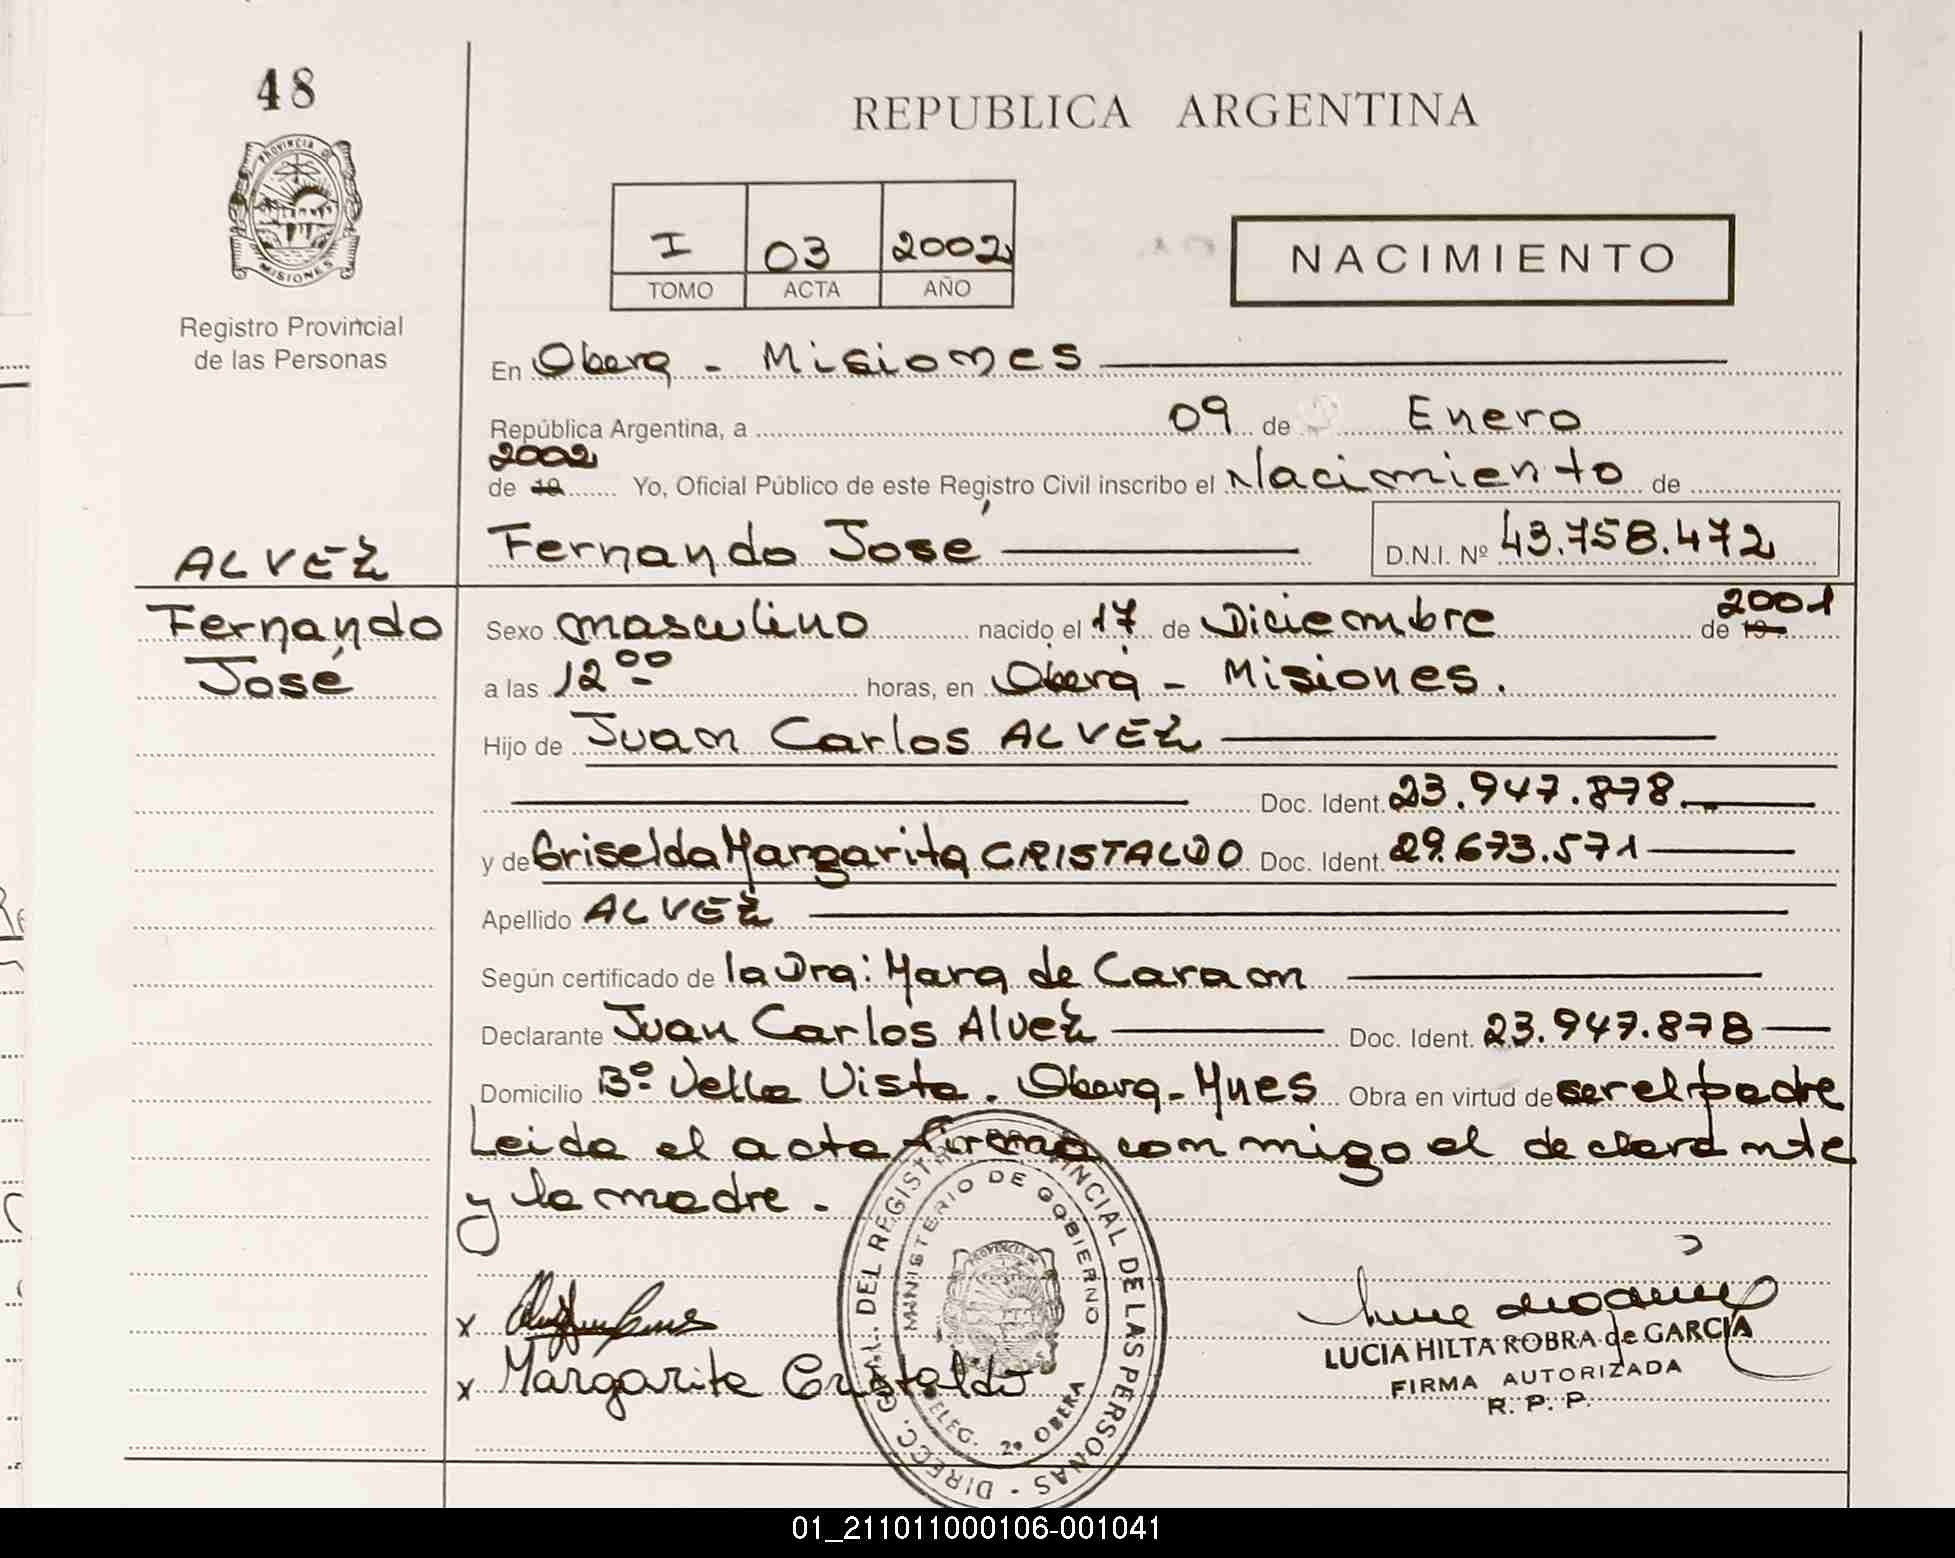 48
PROVINCIA D
MISIONES
Registro Provincial
de las Personas
REPUBLICA ARGENTINA
I 03 2002
TOMO ACTA AÑO
NACIMIENTO
En Oberá - Misiones
República Argentina, a 09 de Enero
2002
de 19 Yo, Oficial Público de este Registro Civil inscribo el Nacimiento de
ALVEZ Fernando José D.N.I. Nº 43.758.472
Fernando
José
2001
Sexo masculino nacido el 17 de Diciembre de 19
a las 12 00 horas, en Oberá - Misiones.
Hijo de Juan Carlos ALVEZ
Doc. Ident. 23.947.878.
y de Griselda Margarita CRISTALDO Doc. Ident. 29.673.571
Apellido ALVEZ
Según certificado de la Dra: Mara de Caraon
Declarante Juan Carlos Alvez Doc. Ident. 23.947.878
Domicilio Bº Vella Vista. Oberá - Mnes Obra en virtud de ser el padre
Leida el acta firma conmigo el declarante
y la madre.
x
x Margarita Cristaldo
DIRECC. GRAL. DEL REGISTRO PROVINCIAL DE LAS PERSONAS -
MINISTERIO DE GOBIERNO
DELEG. 2ª OBERA
LUCIA HILTA ROBRA de GARCIA
FIRMA AUTORIZADA
R. P. P.
01_211011000106-001041